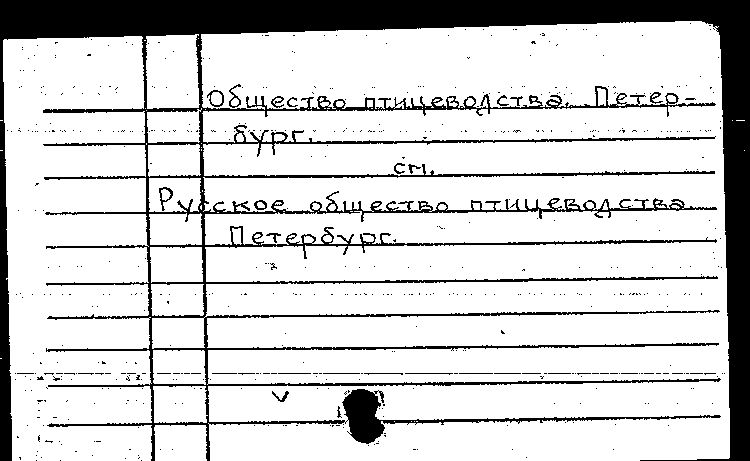 Общество птицеводства. Петер-
бург.
см.
Русское общество птицеводства.
Петербург.